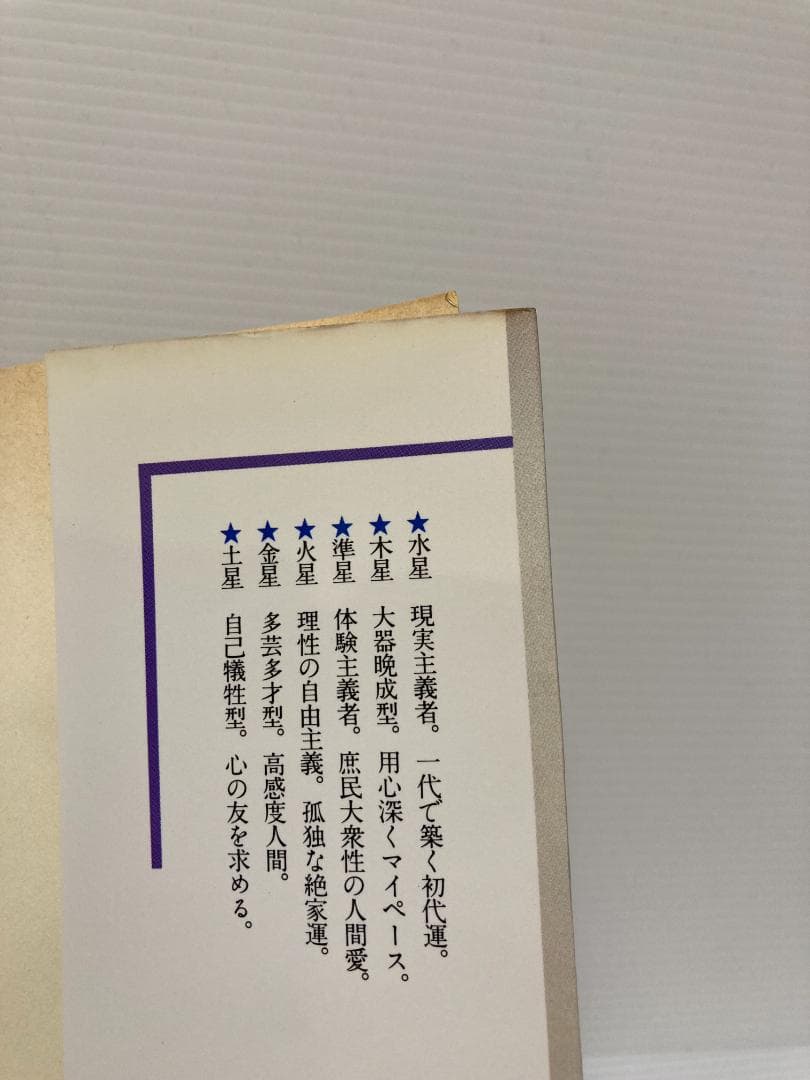 ★水星 現実主義者。一代で築く初代運。
★木星 大器晩成型。用心深くマイペース。
★準星 体験主義者。庶民大衆性の人間愛。
★火星 理性の自由主義。孤独な絶家運。
★金星 多芸多才型。高感度人間。
★土星 自己犠牲型。心の友を求める。